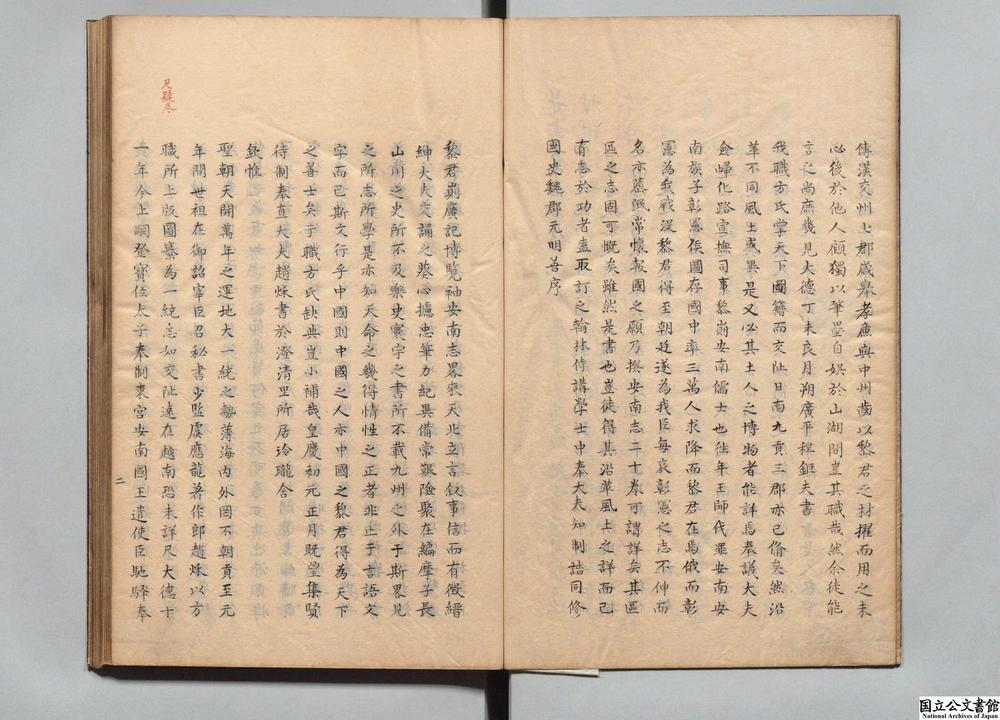 傳漢交州士郡歲舉孝廉與中州齒以黎君之材擢而用之未
必後於他人顧獨以筆墨自娛於山湖間豈其職哉然余徒能
言之尚庶幾見大德丁未良月朔廣平程鉅夫書
我職方氏掌天下圖籍而交阯日南九真三郡亦已俻矣然沿
革不同風土或異是又必其土人之博物者能詳焉奉議大夫
僉歸化路宣撫司事黎崱安南儒士也徃年王師伐罪安南安
南族子彰憲矦圖存國中率三萬人求降而黎君在焉俄而彰
憲為我戰没黎君得至朝廷遂為我臣每哀彰憲之志不伸而
名亦薦湮常懷報國之願乃撰安南志二十卷可謂詳矣其區
區之志固可慨矣雖然是書也豈徒得其沿革風土之詳而已
有志於功者盍取訂之翰林侍講學士中奉大夫知制誥同修
國史魏郡元明善序
黎君崱廣記博覽袖安南志畧來天北立言叙事信而有徵縉
紳大夫交誦之葵心攄忠筆力紀異備常艱險聚在編摩子長
山川之史所不及樂史寰宇之書所不載九州之外于斯畧見
之所志所學是亦知天命之幾得情性之正者非止于言語文
字而已斯文行乎中國則中國之人亦中國之黎君得為天下
之善士矣于職方氏缺典豈小補哉皇慶初元正月既望集賢
待制奉直大夫趙秌書於澄清里所居玲瓏舍
欽惟
聖朝天開萬年之運地大一統之勢薄海内外罔不朝貢至元
年間世祖在御詔宰臣召秘書少監虞應龍著作郎趙秌以方
職所上版圖纂為一統志如交阯遠在越南恐未詳尺大德十
一年今上嗣登寶位太子奉制東宫安南國王遣使臣馳驛奉
二
尺疑尽
国立公文書館
National Archives of Japan